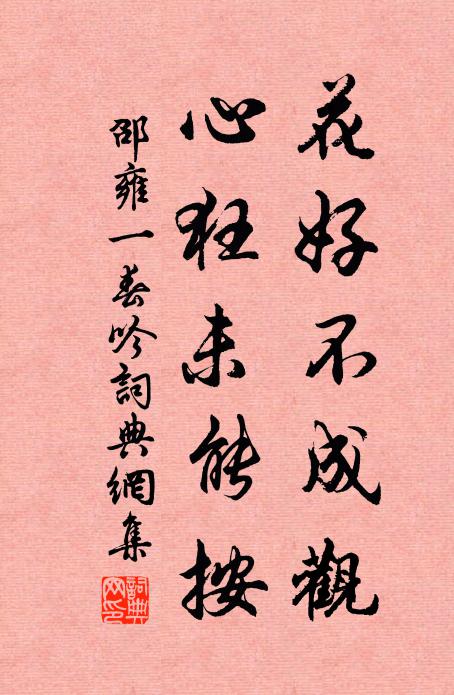 花好不成觀
心狂未能按
邵雍一春吟詞典網集
詞典網印